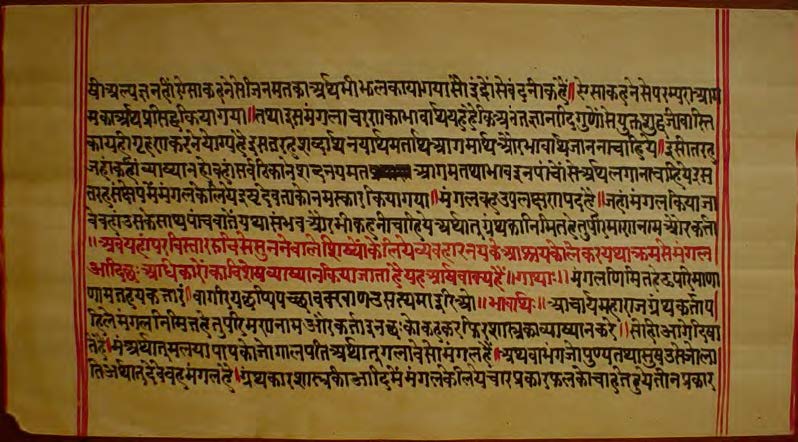 थी अल्पज्ञ नहीं ऐसा कहने से जिनमत का अर्थ भी झलकाया गया सौ इंद्रों से वंदनीक हैं॥ ऐसा कहने से परम्परा आग
म का अर्थ प्रसिद्ध किया गया॥ तथा इस मंगलाचरण का भावार्थ यह है कि अनंत ज्ञानादि गुणों से युक्त शुद्ध जीवास्ति
काय ही ग्रहण करने योग्य है इस तरह शब्दार्थ नयार्थ मतार्थ आगमार्थ और भावार्थ जानना चाहिये॥ इसी तरह
जहां कहीं व्याख्यान हो वहां सर्व ठिकाने शब्द नय मत आगम तथा भाव इन पांचों से अर्थ लगाना चाहिये इस
तरह संक्षेप में मंगल के लिये इष्ट देवता को नमस्कार किया गया॥ मंगल यह उपलक्षण पद है॥ जहां मंगल किया जा
वे वहां उसके साथ पांच बातें यथा संभव और भी कहनी चाहिये अर्थात् ग्रंथ का निमित्त हेतु परिमाण नाम और कर्ता
॥ अब यहां पर विस्तार रुचि से सुनने वाले शिष्यों के लिये व्यवहार नय के आश्रय को लेकर यथाक्रम से मंगल
आदि छः अधिकारों का विशेष व्याख्यान किया जाता है यह आर्ष वाक्य है॥ गाथा॥ मंगल णिमित्त हेउ परिमाणा
णाम तह य कत्तारं॥ वागरिय छप्पि पच्छा वक्खाणउ सत्थमाइरिओ॥ भावार्थ॥ आचार्य महाराज ग्रंथ कर्ता प
हिले मंगल निमित्त हेतु परिमाण नाम और कर्ता इन छः को कहकर फिर शास्त्र का व्याख्यान करे॥ सो ही आगे दिखा
ते हैं॥ मं अर्थात् मल या पाप को जो गालयति अर्थात् गलावे सो मंगल है॥ अथवा मंग जो पुण्य तथा सुख उसे जो ला
ति अर्थात् देवे वह मंगल है॥ ग्रंथकार शास्त्र की आदि में मंगल के लिये चार प्रकार फल को चाहते हुये तीन प्रकार